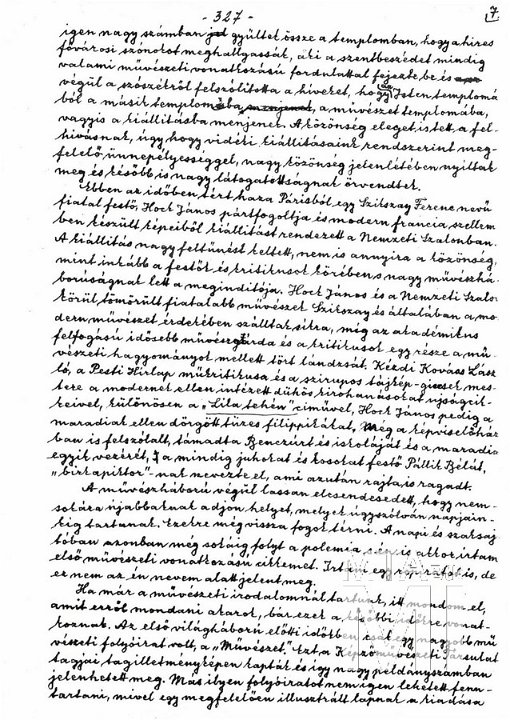 - 327 -
7
igen nagy számban gyültek össze a templomban, hogy a híres
fővárosi szónokot meghallgassák, aki a szentbeszédet mindig
valami művészeti vonatkozású fordulattal fejezte be és
végül a szószékről felszólította a híveket, hogy Isten templomá
ból a másik templomba, a művészet templomába,
vagyis a kiállításba menjenek. A közönség eleget is tett a fel-
hívásnak, úgy hogy vidéki kiállításaink rendszerint meg-
felelő ünnepélyességgel, nagy közönség jelenlétében nyiltak
meg és később is nagy látogatottságnak örvendtek.
Ebben az időben tért haza Párisból egy Szikszay Ferenc nevű
fiatal festő, Hock János pártfogoltja és modern francia szellem
ben készült képeiből kiállítást rendezett a Nemzeti Szalonban.
A kiállítás nagy feltünést keltett, nem is annyira a közönség,
mint inkább a festők és kritikusok körében s nagy művészhá-
borúságnak lett a megindítója. Hock János és a Nemzeti Szalo-
körül tömörült fiatalabb művészek Szikszay és általában a mo-
dern művészet érdekében szálltak síkra, míg az akadémikus
felfogású idősebb művészgárda és a kritikusok egy része a mű-
vészeti hagyományok mellett tört lándzsát. Kézdi Kovács Lász
ló, a Pesti Hirlap műkritikusa és a szirupos tájkép-giccsek mes-
tere a modernek ellen intézett dühös kirohanásokat ujságcik-
keivel, különösen a „Lila tehén" cíművel, Hock János pedig a
maradiak ellen dörgött tüzes filippikákat, még a képviselőház
ban is felszólalt, támadta Benczúrt és iskoláját és a maradiak
egyik vezérét, a mindig juhokat és kosokat festő Pállik Bélát,
„birkapiktor"-nak nevezte el, ami azután rajta is ragadt.
A művészháború végül lassan elcsendesedett, hogy nem-
sokára újabbaknak adjon helyet, melyek úgyszólván napjain-
kig tartanak. Ezekre még vissza fogok térni. A napi és szaksaj
tóban azonban még sokáig folyt a polemia, s én is akkor írtam
első művészeti vonatkozású cikkemet. Irtam egy röpiratot is, de
ez nem az én nevem alatt jelent meg.
Ha már a művészeti irodalomnál tartunk, itt mondom el,
amit erről mondani akarok, bár ezek a későbbi időkre vonat-
koznak. Az első világháború előtti időkben csak egy nagyobb mű
vészeti folyóirat volt, a „Művészet". Ezt a Képzőművészeti Társulat
tagjai tagilletményképen kapták és így nagy példányszámban
jelenhetett meg. Más ilyen folyóiratot nem igen lehetett fenn-
tartani, mivel egy megfelelően illusztrált lapnak a kiadása